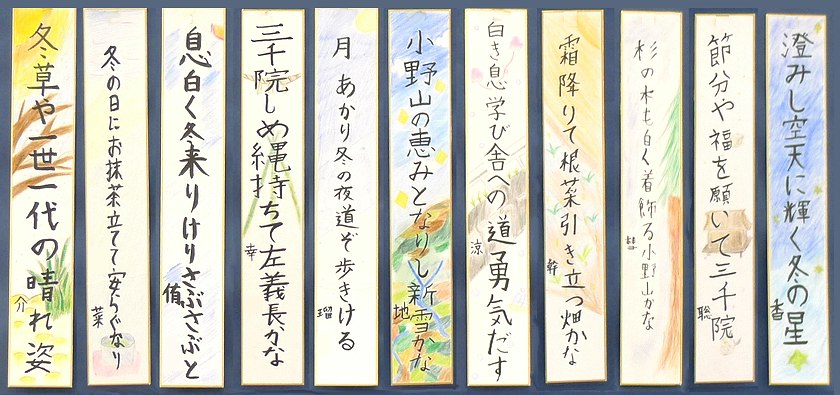 澄みし空天に輝く冬の星
香
節分や福を願いて三千院
聡
杉の木も白く着飾る小野山かな
彗
霜降りて根菜引き立つ畑かな
幹
白き息学び舎への道勇気だす
涼
小野山の恵みとなりし新雪かな
地
月あかり冬の夜道ぞ歩きける
瑠
三千院しめ縄持ちて左義長かな
幸
息白く冬来りけりさぶさぶと
侑
冬の日にお抹茶立てて安らぐなり
菜
冬草や一世一代の晴れ姿
介